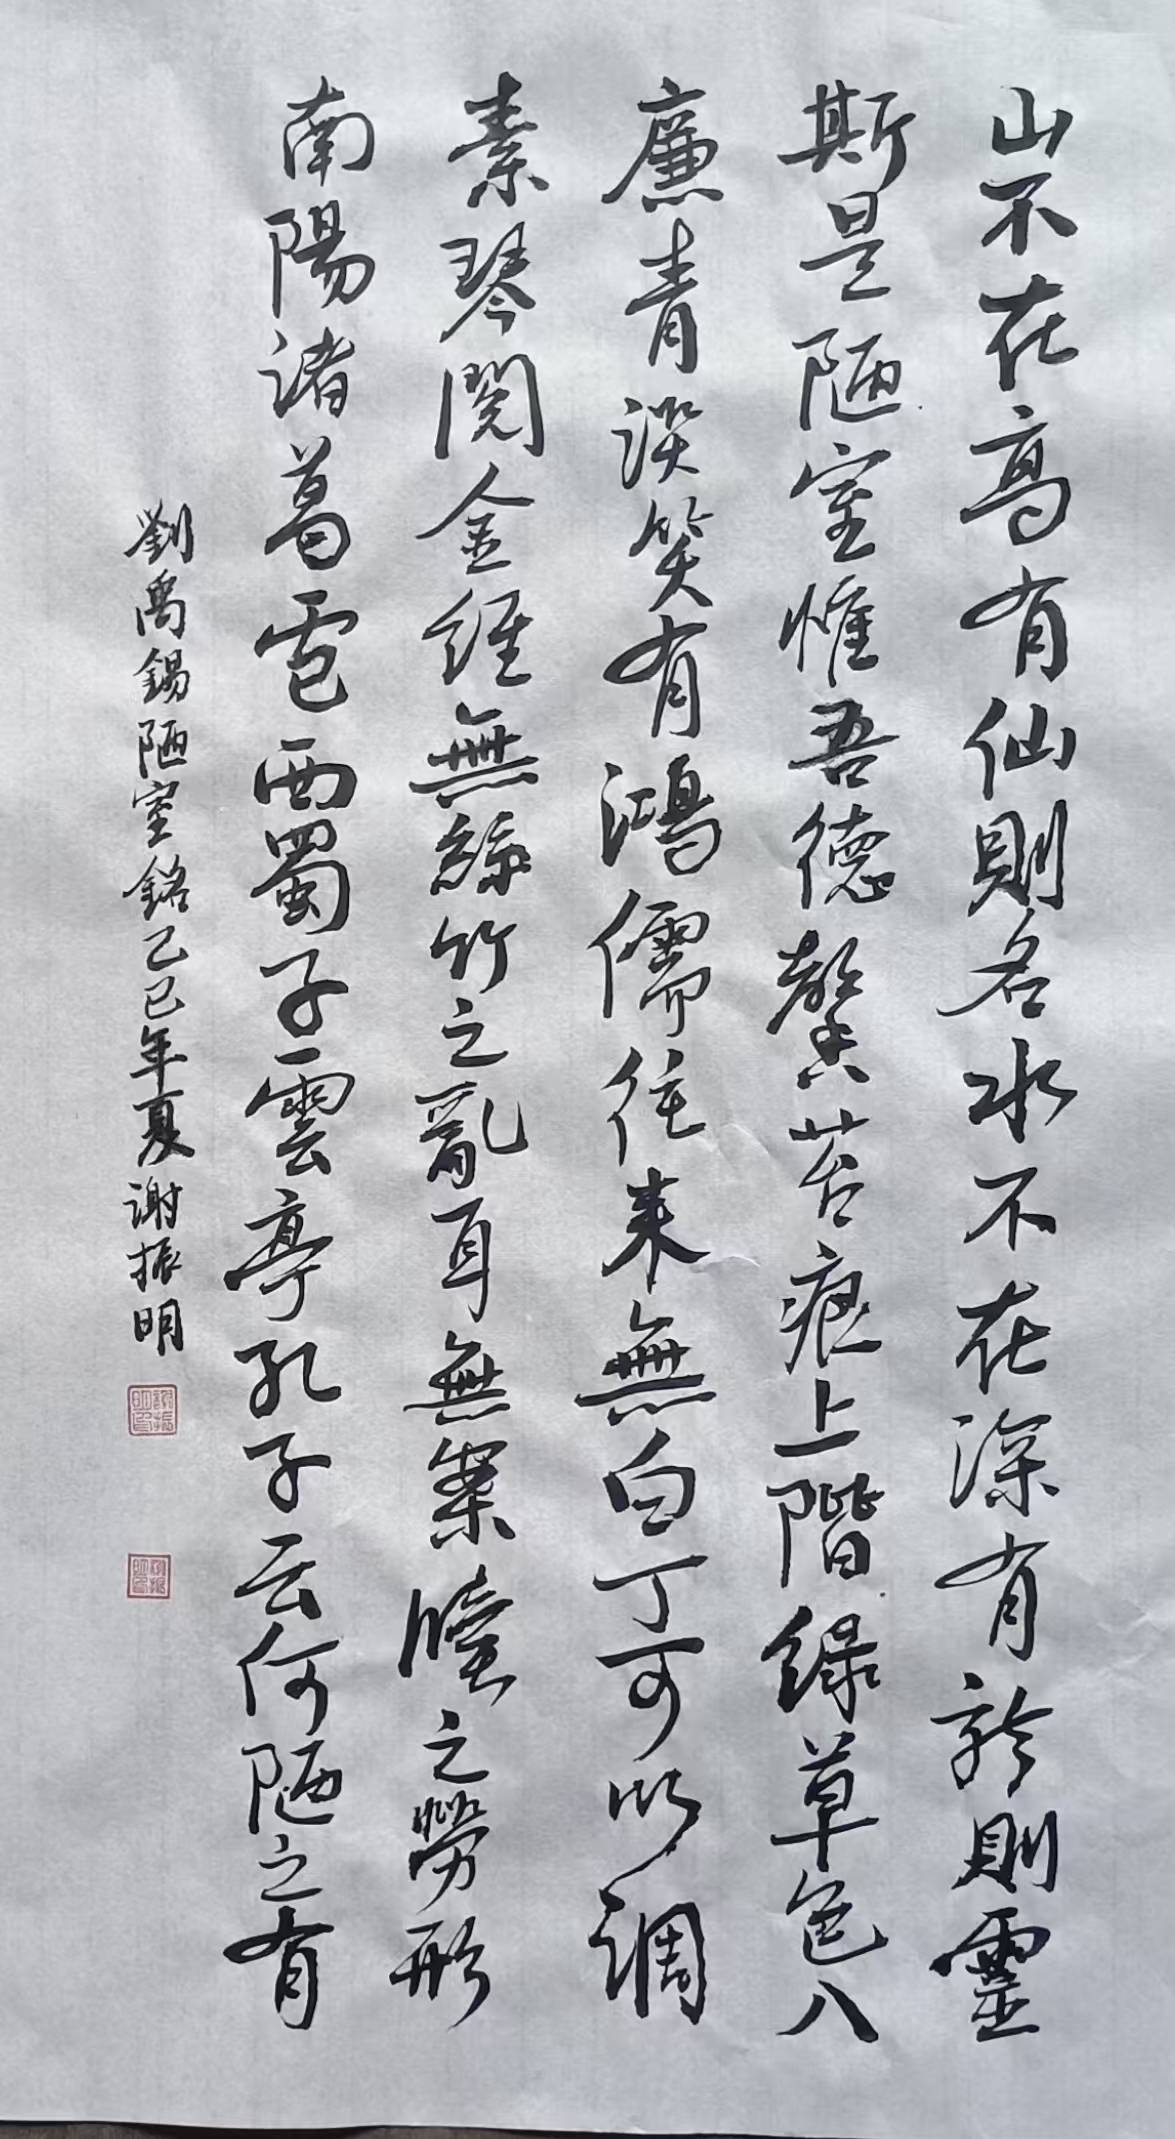 山不在高有仙則名水不在深有龍則靈
斯是陋室惟吾德馨苔痕上階綠草色入
廉青談笑有鴻儒往来無白丁可以調
素琴閱金經無絲竹之亂耳無案牘之勞形
南陽諸葛廬西蜀子雲亭孔子云何陋之有
劉禹錫陋室銘乙巳年夏謝振明